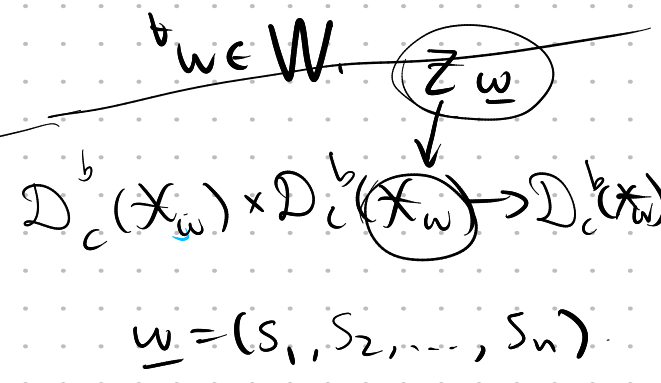 ∀w ∈ W. Z_{\underline{w}}
D^b_c(X_w) × D^b_c(X_w) → D^b_c(X_w)
\underline{w} = (s_1, s_2, ..., s_n)